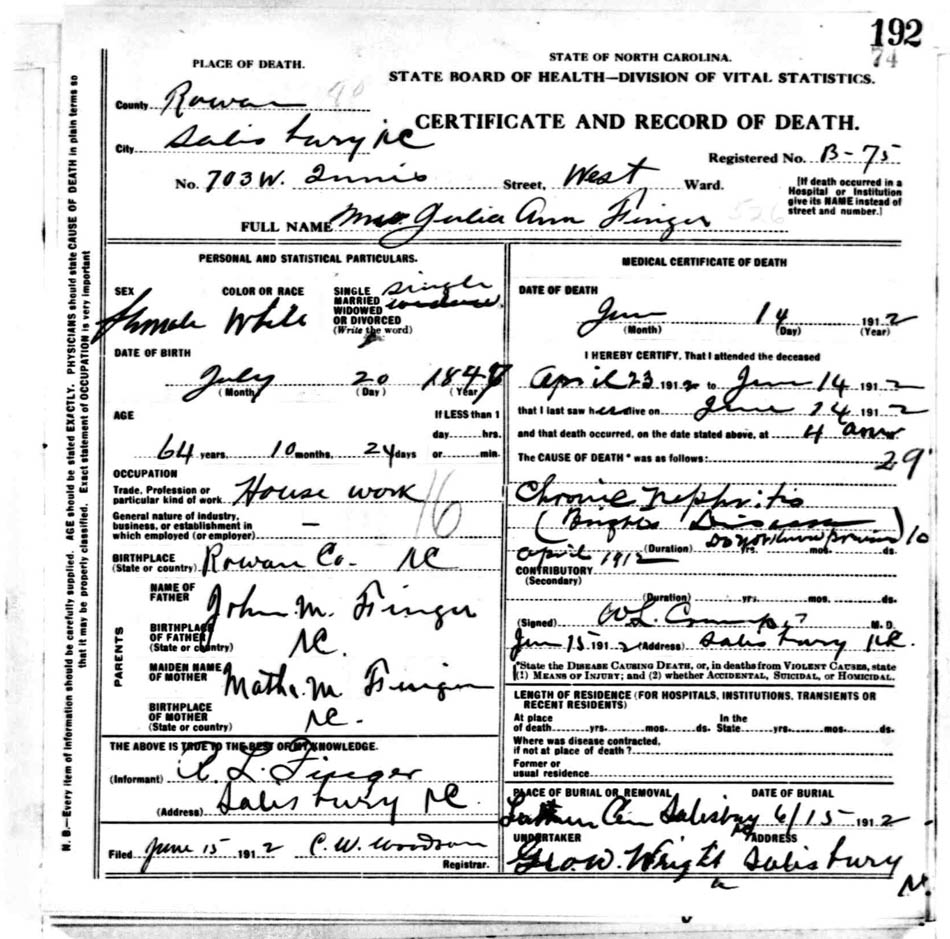 192
74
PLACE OF DEATH.
STATE OF NORTH CAROLINA.
STATE BOARD OF HEALTH—DIVISION OF VITAL STATISTICS.
County Rowan 90
CERTIFICATE AND RECORD OF DEATH.
City Salisbury NC
Registered No. B-75
No. 703 W. Innis Street, West Ward.
[If death occurred in a Hospital or Institution give its NAME instead of street and number.]
FULL NAME Julia Ann Finger 526
PERSONAL AND STATISTICAL PARTICULARS.
SEX
Female
COLOR OR RACE
White
SINGLE
MARRIED
WIDOWED
OR DIVORCED
(Write the word)
Single
DATE OF BIRTH
July 20 1847
(Month) (Day) (Year)
AGE
If LESS than 1
day hrs.
64 years, 10 months, 24 days or min.
OCCUPATION
Trade, Profession or
particular kind of work House work
16
General nature of industry,
business, or establishment in
which employed (or employer) —
BIRTHPLACE
(State or country) Rowan Co. NC
PARENTS
NAME OF
FATHER John M. Finger
BIRTHPLACE
OF FATHER
(State or country) NC.
MAIDEN NAME
OF MOTHER M. Finger
BIRTHPLACE
OF MOTHER
(State or country) NC.
THE ABOVE IS TRUE TO THE BEST OF MY KNOWLEDGE.
(Informant) L. Finger
(Address) Salisbury NC.
Filed June 15 1912 C. W. Woodson
Registrar.
MEDICAL CERTIFICATE OF DEATH
DATE OF DEATH
Jun 14 1912
(Month) (Day) (Year)
I HEREBY CERTIFY, That I attended the deceased
April 23 1912 to Jun 14 1912
that I last saw her alive on June 14 1912
and that death occurred, on the date stated above, at 4 am
The CAUSE OF DEATH* was as follows: 29
Chronic Nephritis
(Brights Disease)
Do not know previous 10
April 1912 (Duration) yrs. mos. ds.
CONTRIBUTORY
(Secondary)
(Duration) yrs. mos. ds.
(Signed) W L Crump M. D.
Jun 15 1912 (Address) Salisbury NC.
*State the DISEASE CAUSING DEATH, or, in deaths from VIOLENT CAUSES, state
(1) MEANS OF INJURY; and (2) whether ACCIDENTAL, SUICIDAL, or HOMICIDAL.
LENGTH OF RESIDENCE (FOR HOSPITALS, INSTITUTIONS, TRANSIENTS OR
RECENT RESIDENTS)
At place
of death yrs. mos. ds.
In the
State yrs. mos. ds.
Where was disease contracted,
if not at place of death?
Former or
usual residence
PLACE OF BURIAL OR REMOVAL DATE OF BURIAL
Cem Salisbury 6/15 1912
UNDERTAKER ADDRESS
Geo. W. Wright Salisbury
N.
N. B.—Every item of information should be carefully supplied. AGE should be stated EXACTLY. PHYSICIANS should state CAUSE OF DEATH in plain terms so
that it may be properly classified. Exact statement of OCCUPATION is very important